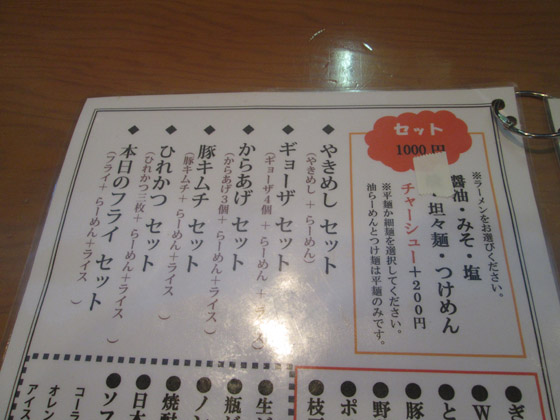 セット
1000円
※ラーメンをお選びください。
醤油・みそ・塩
・坦々麺・つけめん
チャーシュー+200円
※平麺か細麺を選択してください。
油らーめんとつけ麺は平麺のみです。
◆ やきめし セット
(やきめし + らーめん)
◆ ギョーザ セット
(ギョーザ4個 + らーめん + ライス)
◆ からあげ セット
(からあげ3個 + らーめん+ライス)
◆ 豚キムチ セット
(豚キムチ+ らーめん+ライス)
◆ ひれかつ セット
(ひれかつ三枚+ らーめん+ライス )
◆ 本日のフライ セット
(フライ+ らーめん+ライス )
●
●
●と
●豚
●野
●ポ
●枝
●生
●瓶
●ノン
●焼酎
●日本
●ソフ
コーラ
オレン
アイス